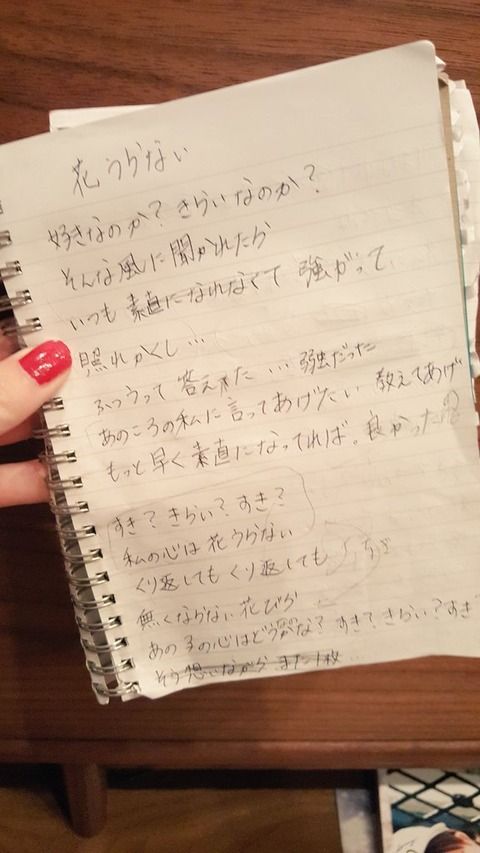 花うらない
好きなのか？きらいなのか？
そんな風に聞かれたら
いつも素直になれなくて 強がって
照れかくし…
ふつうって 答えた … 弱虫だった
あのころの私に言ってあげたい 教えてあげ
もっと早く素直になってれば。良かった
すき？きらい？すき？
私の心は花うらない
くり返しても くり返しても
無くならない花びら
あの子の心はどうかな？すき？きらい？すき
そう想いながら また1枚…